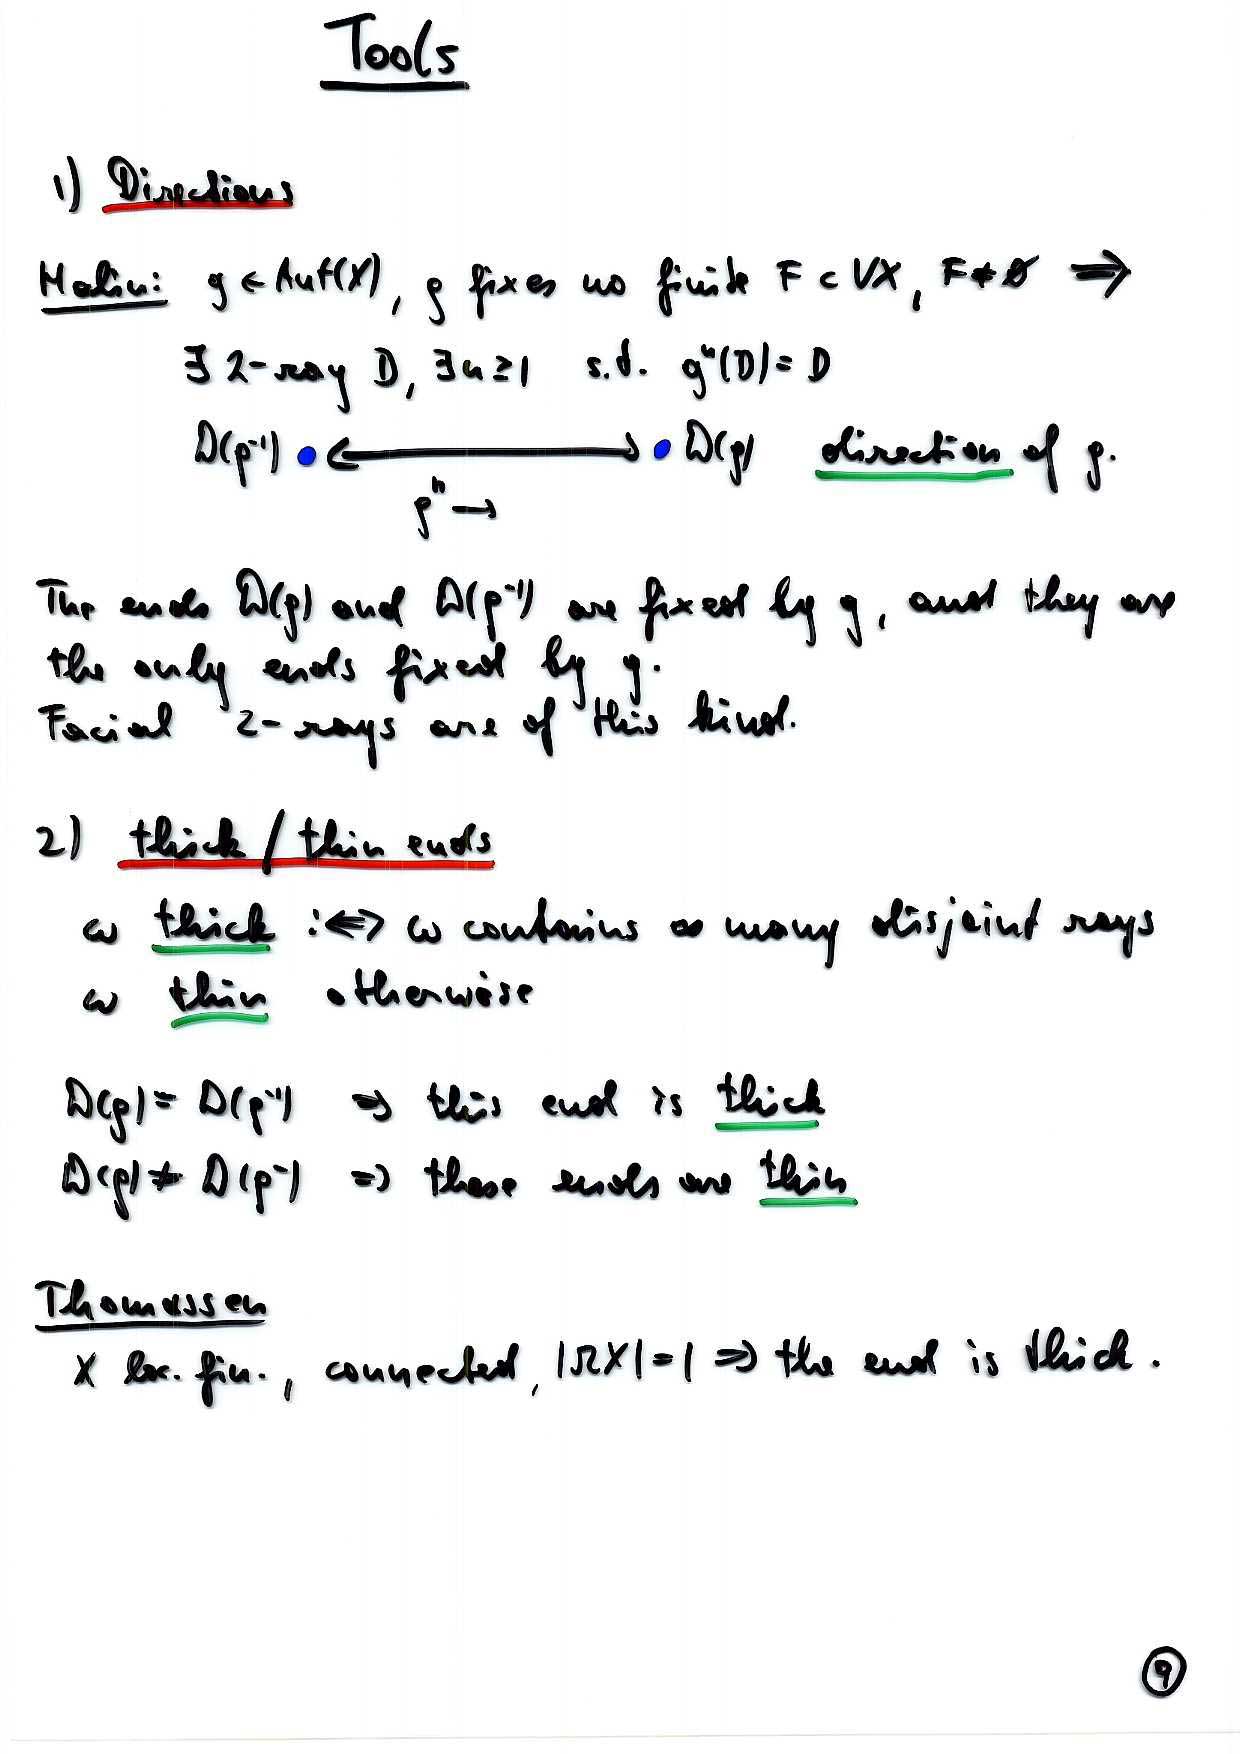 Tools
1) Directions
Halin: g ∈ Aut(X), g fixes no finite F ⊂ VX, F ≠ ∅ ⇒
∃ 2-ray D, ∃ n ≥ 1 s.t. gⁿ(D) = D
D(g⁻¹) D(g) direction of g.
gⁿ →
The ends D(g) and D(g⁻¹) are fixed by g, and they are
the only ends fixed by g.
Facial 2-rays are of this kind.
2) thick / thin ends
ω thick :⇔ ω contains ∞ many disjoint rays
ω thin otherwise
D(g) = D(g⁻¹) ⇒ this end is thick
D(g) ≠ D(g⁻¹) ⇒ these ends are thin
Thomassen
X loc. fin., connected, |ΩX| = 1 ⇒ the end is thick.
9